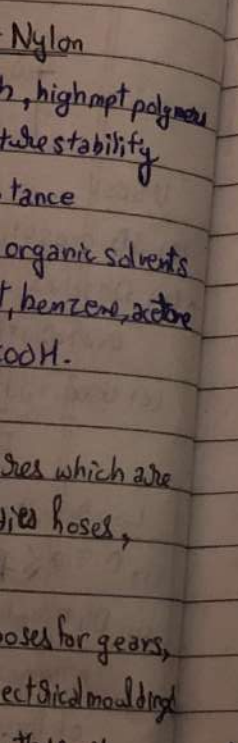 Nylon
h, high mpt polymers
ture stability
tance
organic solvents
t, benzene, acetone
COOH.
res which are
hoses,
poses for gears,
ectrical mouldings